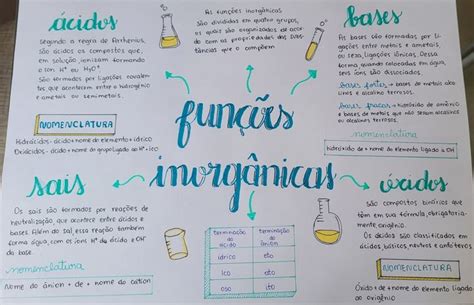 ácidos
Segundo a regra de Arrhenius,
são ácidos os compostos que,
em solução, ionizam formando
o íon H⁺ ou H₃O⁺.
São formados por ligações covalen
tes que acontecem entre o hidrogênio
e ametais ou semimetais.
NOMENCLATURA
Hidrácidos - ácido + nome do elemento + ídrico
Oxiácidos - ácido + nome do grupo ligado ao H⁺ + ico
As funções inorgânicas
são divididas em quatro grupos,
os quais são organizados de acor
do com as propriedades das subs
tâncias que o compõem
bases
As bases são formadas por li
gações entre metais e ametais,
ou seja, ligações iônicas. Dessa
forma quando colocadas em água,
seus íons são dissociados.
bases fortes → bases de metais alca
linos e alcalino terrosos.
bases fracas → hidróxido de amônio
e bases de metais que não seram alcalinos
ou alcalinos terrosos.
nomenclatura
hidróxido de + nome do elemento ligado à OH
funções
inorgânicas
sais
Os sais são formados por reações de
neutralização, que acontece entre ácidos e
bases. Além do sal, essa reação também
forma água, com os íons H⁺ do ácido e OH⁻
da base.
nomenclatura
Nome do ânion + de + nome do cátion
terminação do ácido
terminação do ânion
ídrico
eto
ico
ato
oso
ito
óxidos
São compostos binários que
têm em sua fórmula, obrigatoria
mente oxigênio.
Os óxidos são classificados em
ácidos, básicos, neutros e anfóteros
NOMENCLATURA
Óxido + de + nome do elemento ligado
ao oxigênio